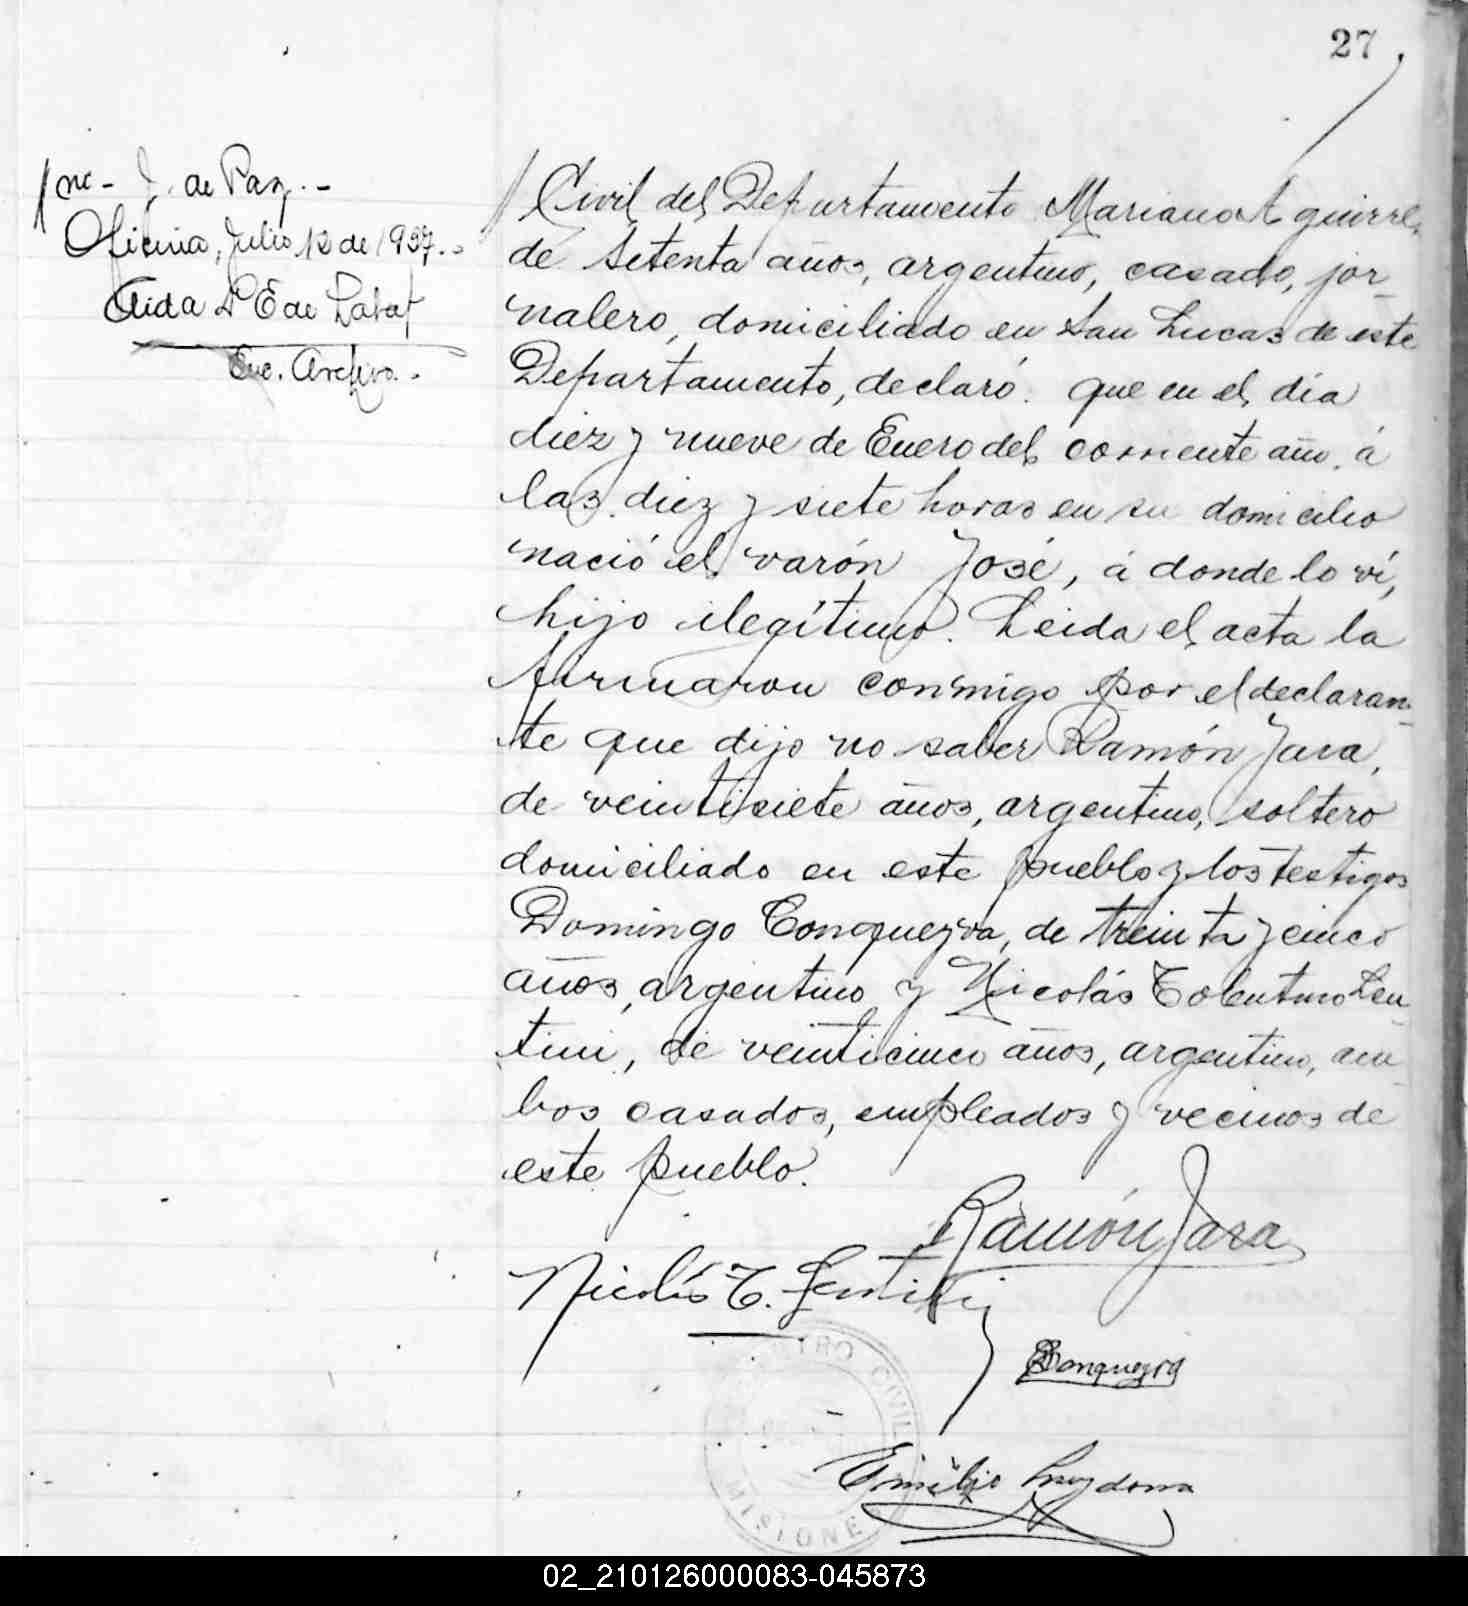 27
nc - J. de Paz. -
Oficina, Julio 12 de 1937. -
Aida L. E de
Enc. Archivo. -
Civil del Departamento Mariano Aguirre,
de setenta años, argentino, casado, jor-
nalero, domiciliado en San Lucas de este
Departamento, declaró: que en el día
diez y nueve de Enero del corriente año, á
las diez y siete horas en su domicilio
nació el varón José, á donde lo ví,
hijo ilegítimo. Leida el acta la
firmaron conmigo por el declaran-
te que dijo no saber Ramón Jara,
de veintisiete años, argentino, soltero
domiciliado en este pueblo y los testigos
Domingo Conqueyra, de treinta y cinco
años, argentino y Nicolás Tolentino Len-
tini, de veinticinco años, argentino, am-
bos casados, empleados y vecinos de
este pueblo.
Ramón Jara
Nicolás T. Lentini
Conqueyra
REGISTRO CIVIL
MISIONES
Emilio
02_210126000083-045873